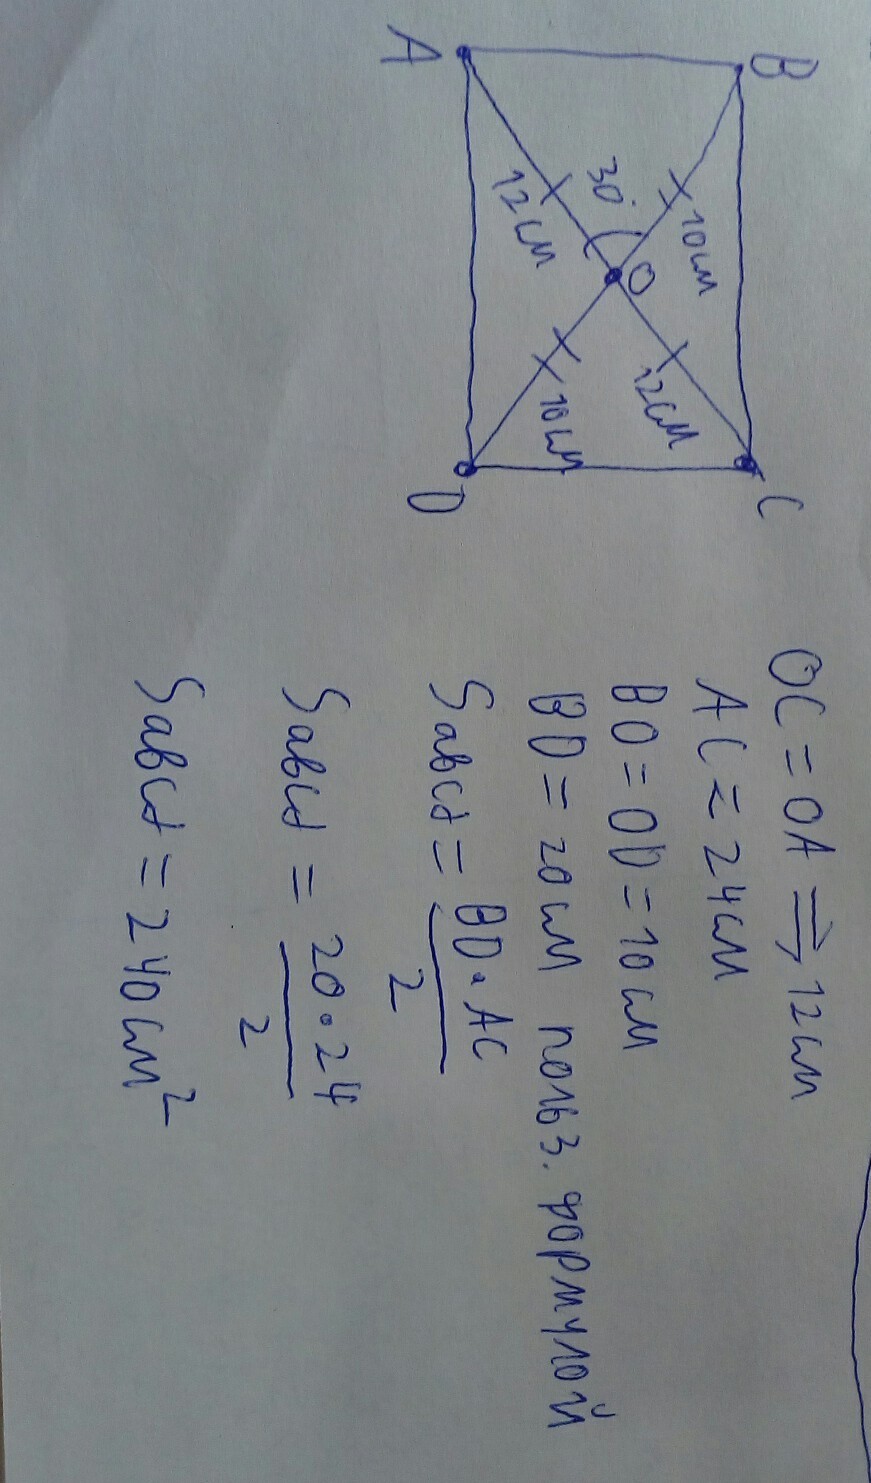 A
B
C
D
O
30°
12см
10см
12см
10см
OC = OA ⇒ 12см
AC = 24см
BO = OD = 10см
BD = 20см польз. формулой
Sabcd = BD · AC / 2
Sabcd = 20 · 24 / 2
Sabcd = 240см²